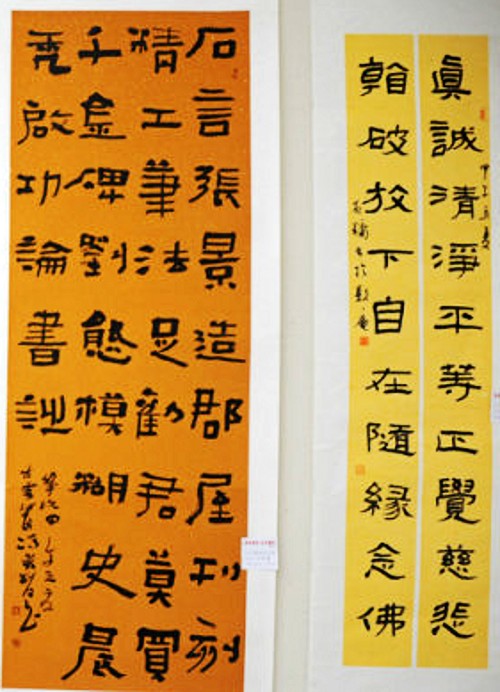 眞誠清淨平等正覺慈悲
看破放下自在隨緣念佛
石言張景造郡屋刊刻
精工筆法足勸君莫買
千金碑劉熊模糊史晨
禿啟功論書詩